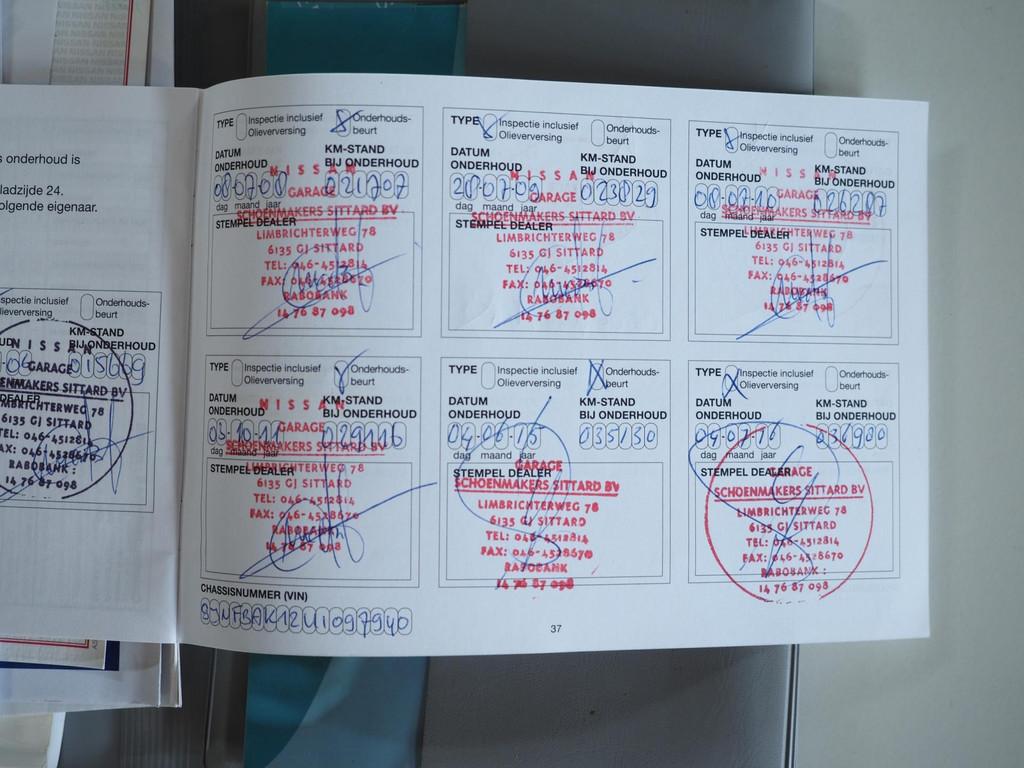 s onderhoud is
ladzijde 24.
olgende eigenaar.
spectie inclusief
lieverversing
Onderhouds-
beurt
KM-STAND
BIJ ONDERHOUD
015669
NISSAN
GARAGE
ENMAKERS SITTARD BV
MBRICHTERWEG 78
6135 GJ SITTARD
TEL: 046-4512814
AX: 046-4528670
RABOBANK :
14 76 87 098
TYPE
Inspectie inclusief
Olieverversing
Onderhouds-
beurt
DATUM
ONDERHOUD
KM-STAND
BIJ ONDERHOUD
08-07-08
021707
dag maand jaar
STEMPEL DEALER
NISSAN
GARAGE
SCHOENMAKERS SITTARD BV
LIMBRICHTERWEG 78
6135 GJ SITTARD
TEL: 046-4512814
FAX: 046-4528670
RABOBANK
14 76 87 098
TYPE
Inspectie inclusief
Olieverversing
Onderhouds-
beurt
DATUM
ONDERHOUD
KM-STAND
BIJ ONDERHOUD
28-07-09
023829
dag maand jaar
STEMPEL DEALER
NISSAN
GARAGE
SCHOENMAKERS SITTARD BV
LIMBRICHTERWEG 78
6135 GJ SITTARD
TEL: 046-4512814
FAX: 046-4528670
RABOBANK
14 76 87 098
TYPE
Inspectie inclusief
Olieverversing
Onderhouds-
beurt
DATUM
ONDERHOUD
KM-STAND
BIJ ONDERHOUD
08-07-10
026207
dag maand jaar
STEMPEL DEALER
NISSAN
GARAGE
SCHOENMAKERS SITTARD BV
LIMBRICHTERWEG 78
6135 GJ SITTARD
TEL: 046-4512814
FAX: 046-4528670
RABOBANK
14 76 87 098
TYPE
Inspectie inclusief
Olieverversing
Onderhouds-
beurt
DATUM
ONDERHOUD
KM-STAND
BIJ ONDERHOUD
03-10-11
029116
dag maand jaar
STEMPEL DEALER
NISSAN
GARAGE
SCHOENMAKERS SITTARD BV
LIMBRICHTERWEG 78
6135 GJ SITTARD
TEL: 046-4512814
FAX: 046-4528670
RABOBANK
14 76 87 098
TYPE
Inspectie inclusief
Olieverversing
Onderhouds-
beurt
DATUM
ONDERHOUD
KM-STAND
BIJ ONDERHOUD
04-06-15
035130
dag maand jaar
STEMPEL DEALER
GARAGE
SCHOENMAKERS SITTARD BV
LIMBRICHTERWEG 78
6135 GJ SITTARD
TEL: 046-4512814
FAX: 046-4528670
RABOBANK
14 76 87 098
TYPE
Inspectie inclusief
Olieverversing
Onderhouds-
beurt
DATUM
ONDERHOUD
KM-STAND
BIJ ONDERHOUD
04-07-16
036980
dag maand jaar
STEMPEL DEALER
GARAGE
SCHOENMAKERS SITTARD BV
LIMBRICHTERWEG 78
6135 GJ SITTARD
TEL: 046-4512814
FAX: 046-4528670
RABOBANK :
14 76 87 098
CHASSISNUMMER (VIN)
SJNFBAK12U1097940
37